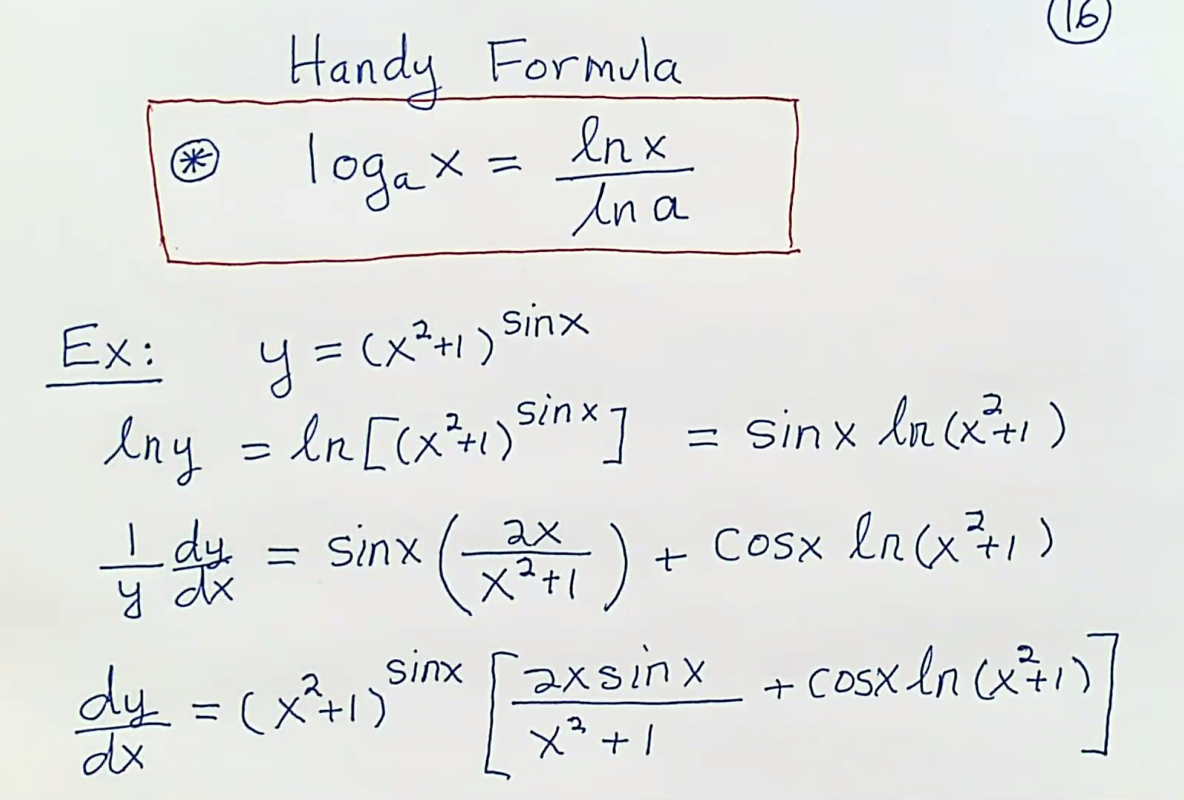 16
Handy Formula
⊛ logₐ x = ln x / ln a
Ex: y = (x²+1)^sinx
ln y = ln[(x²+1)^sinx] = sinx ln(x²+1)
1/y dy/dx = sinx (2x/(x²+1)) + cosx ln(x²+1)
dy/dx = (x²+1)^sinx [2x sinx/(x²+1) + cosx ln(x²+1)]